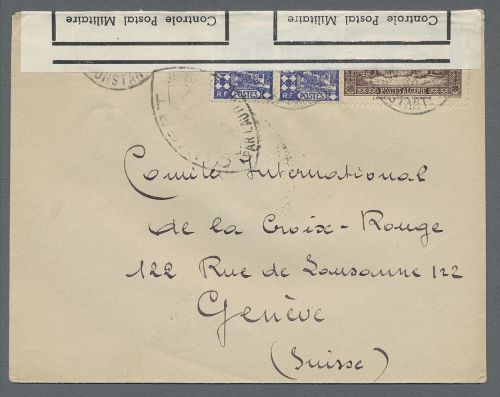 Controle Postal Militaire Controle Postal Militaire
CONSTAN
R.F. POSTES R.F. POSTES POSTES ALGERIE
OUVERT
PAR L'AUTORITÉ
Comité International
de la Croix-Rouge
122 Rue de Lausanne 122
Genève
(Suisse)